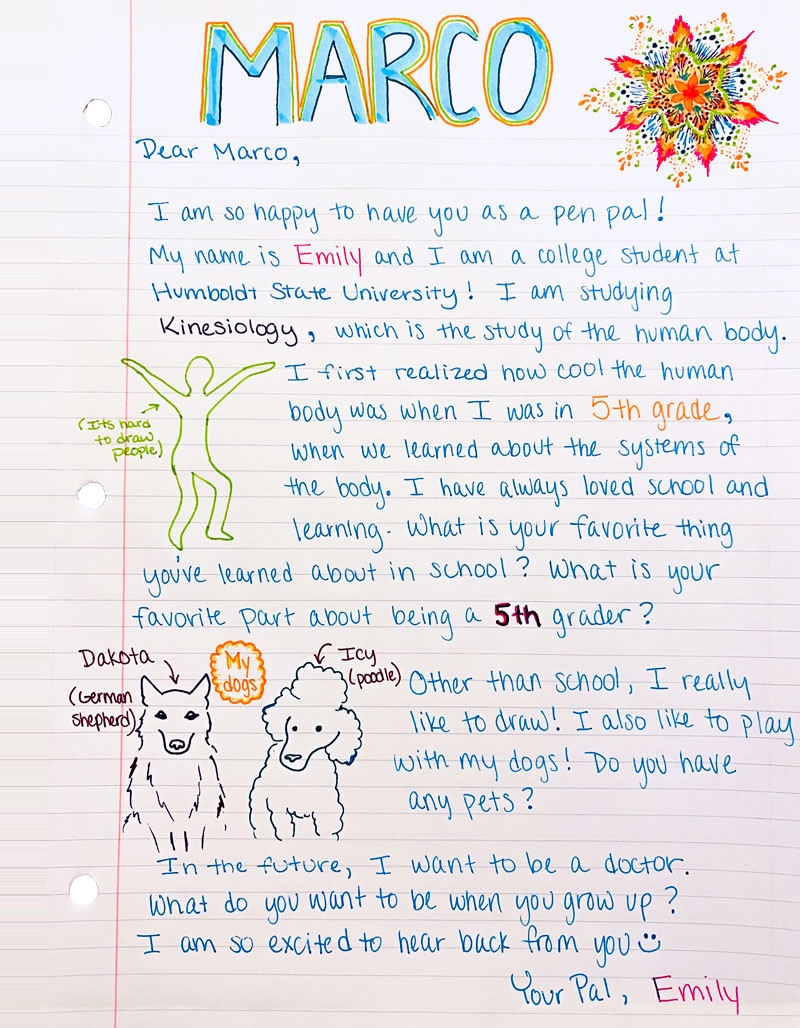 MARCO
Dear Marco,
I am so happy to have you as a pen pal!
My name is Emily and I am a college student at
Humboldt State University! I am studying
Kinesiology, which is the study of the human body.
I first realized how cool the human
body was when I was in 5th grade,
when we learned about the systems of
the body. I have always loved school and
learning. What is your favorite thing
(Its hard
to draw
people)
you've learned about in school? What is your
favorite part about being a 5th grader?
Dakota
(German
shepherd)
My
dogs
Icy
(poodle)
Other than school, I really
like to draw! I also like to play
with my dogs! Do you have
any pets?
In the future, I want to be a doctor.
What do you want to be when you grow up?
I am so excited to hear back from you
Your Pal, Emily